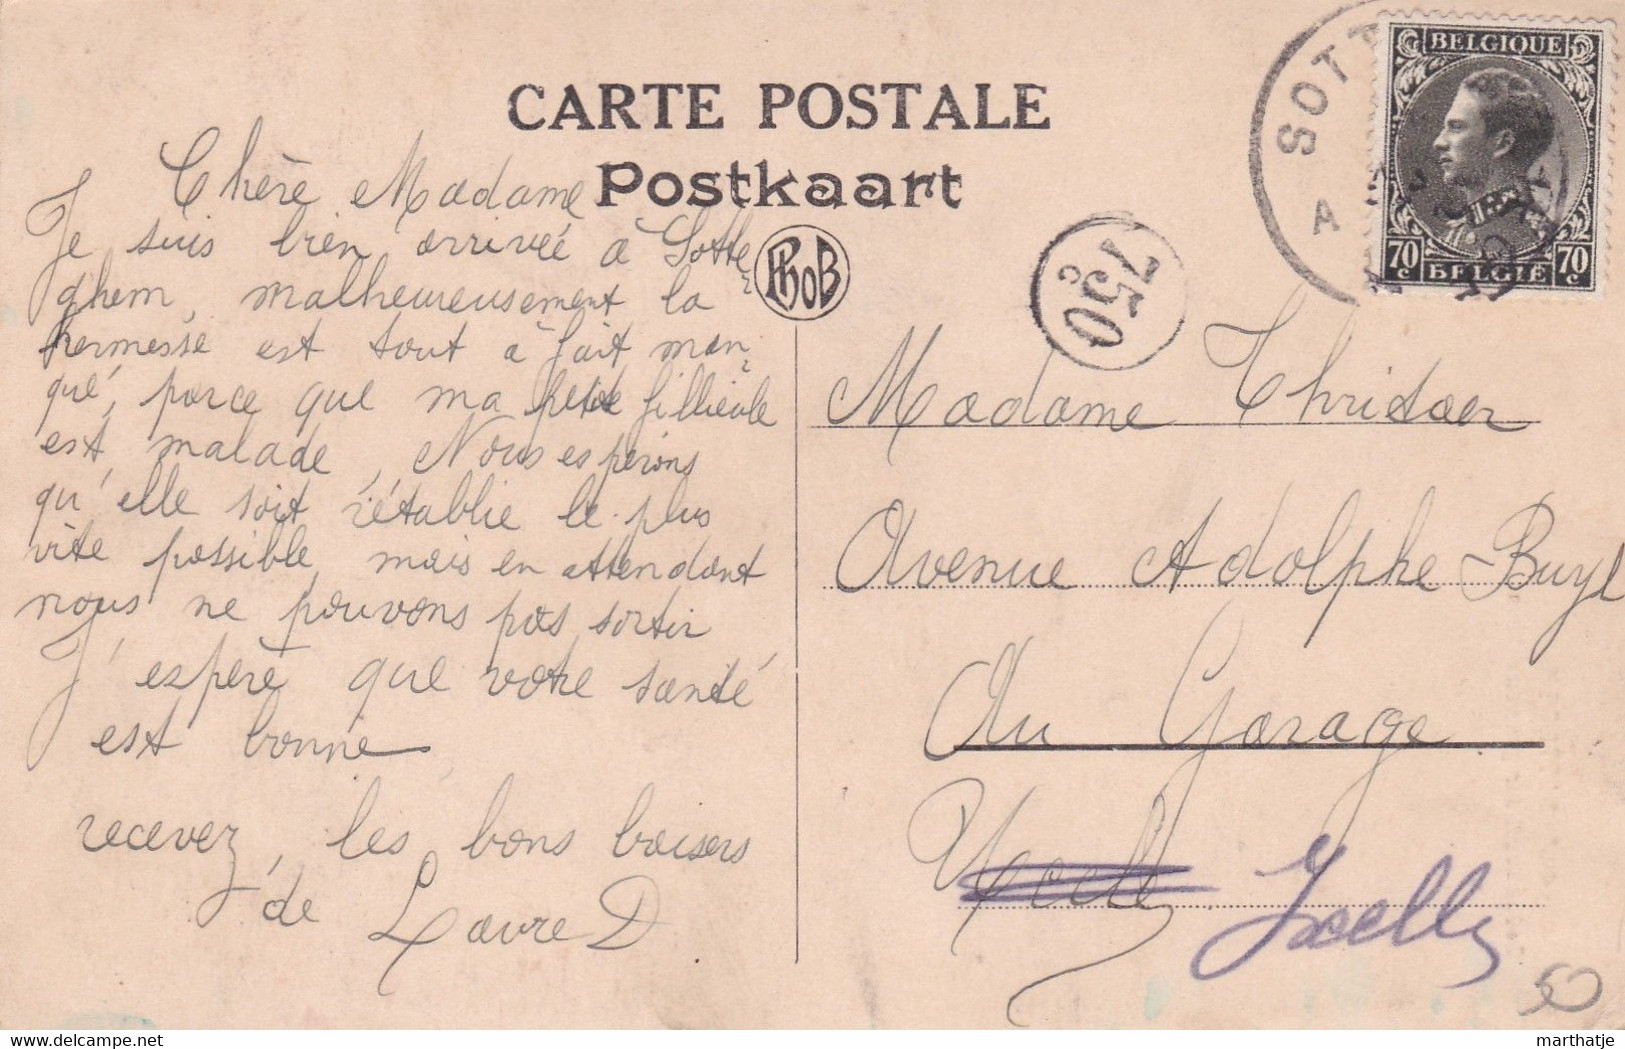 CARTE POSTALE
Postkaart
Chère Madame
Je suis bien arrivée à Sotte
ghem, malheureusement la
kermesse est tout à fait man-
qué, parce que ma petite fillieule
est malade, Nous esperons
qu'elle soit rétablie le plus
vite possible, mais en attendant
nous ne pouvons pas sortir
J'espère que votre santé
est bonne
recevez, les bons baisers
de Laure D
PhoB
750
c
SOTT
A
BELGIQUE
70 c
70 c
BELGIË
Madame Thridaer
Avenue Adolphe Buyl
Au Garage
Ixelles
50
marthatje